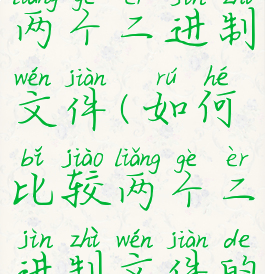 liǎng gè èr jìn zhì
两个二进制
wén jiàn rú hé
文件(如何
bǐ jiào liǎng gè èr
比较两个二
jìn zhì wén jiàn de
进制文件的